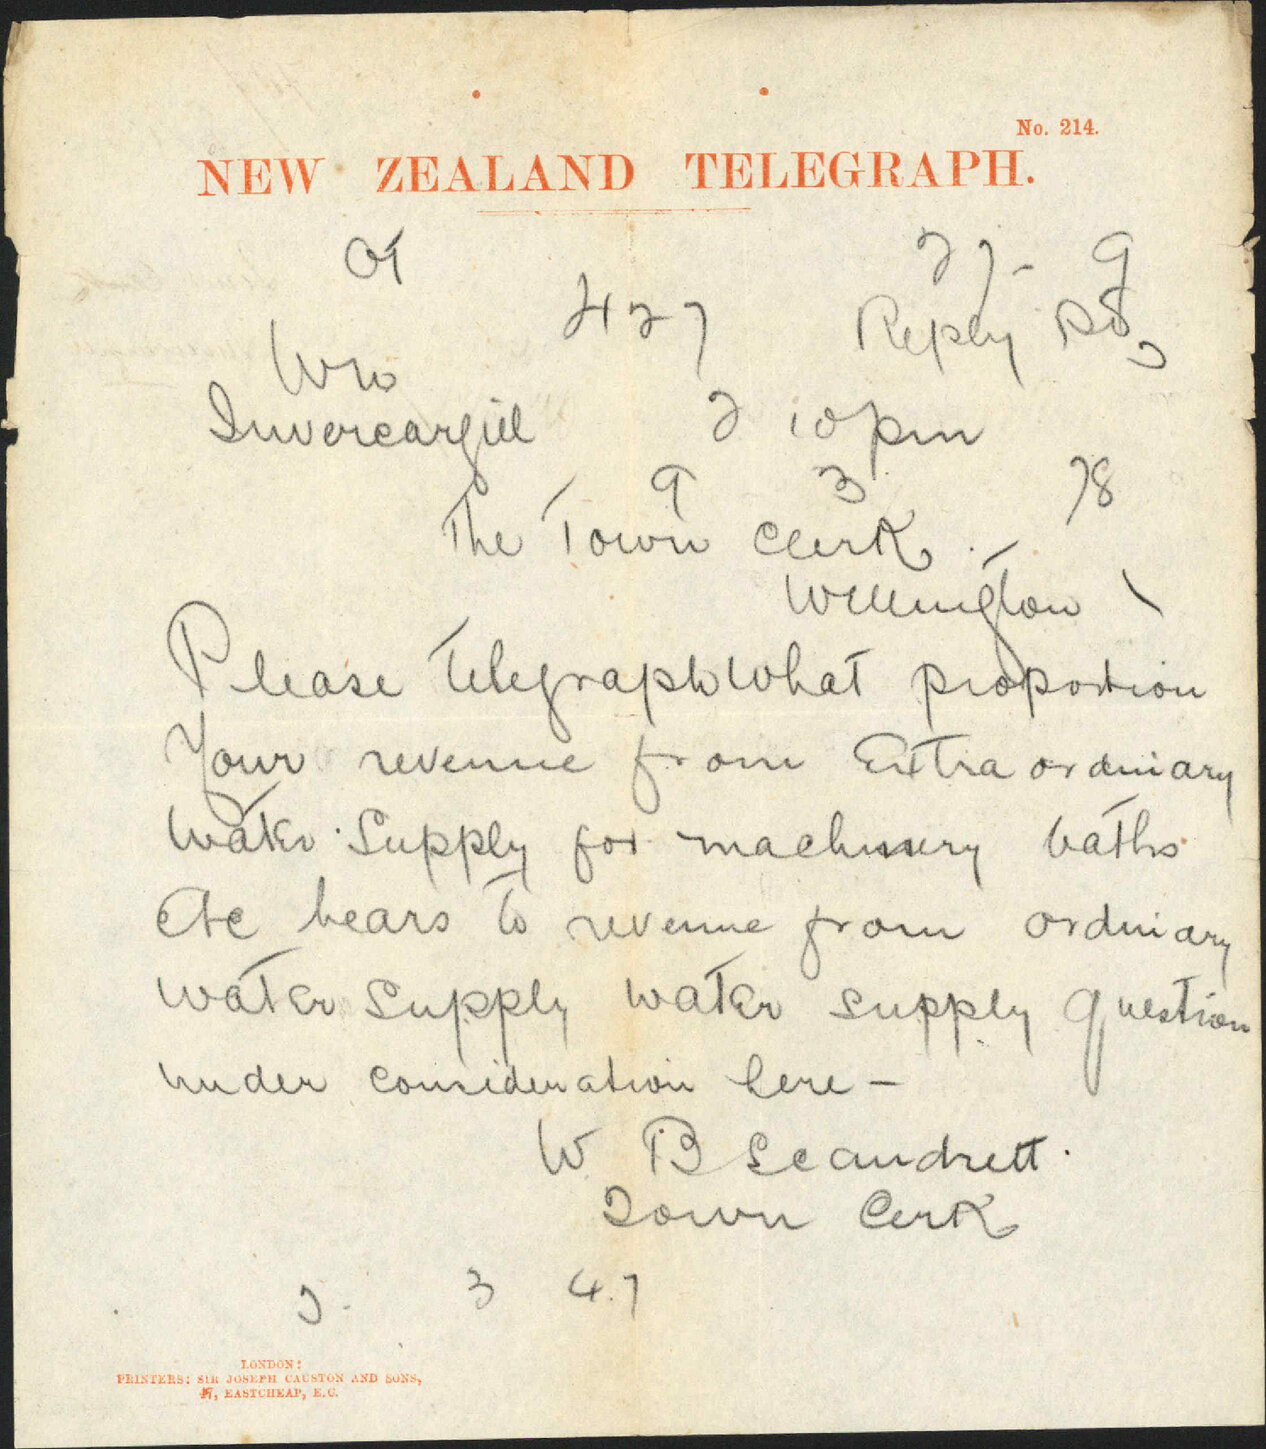 No. 214.
NEW ZEALAND TELEGRAPH.
OT 27- 9
427 Reply Pd
Wn
Invercargill 2 10pm
9 3 78
The Town Clerk
Wellington
Please telegraph what proportion
Your revenue from Extra ordinary
Water Supply for machinery baths
etc bears to revenue from ordinary
water Supply water supply question
under consideration here -
W B Scandrett.
Town Cerk
3 47
LONDON:
PRINTERS: SIR JOSEPH CAUSTON AND SONS,
47, EASTCHEAP, E.C.